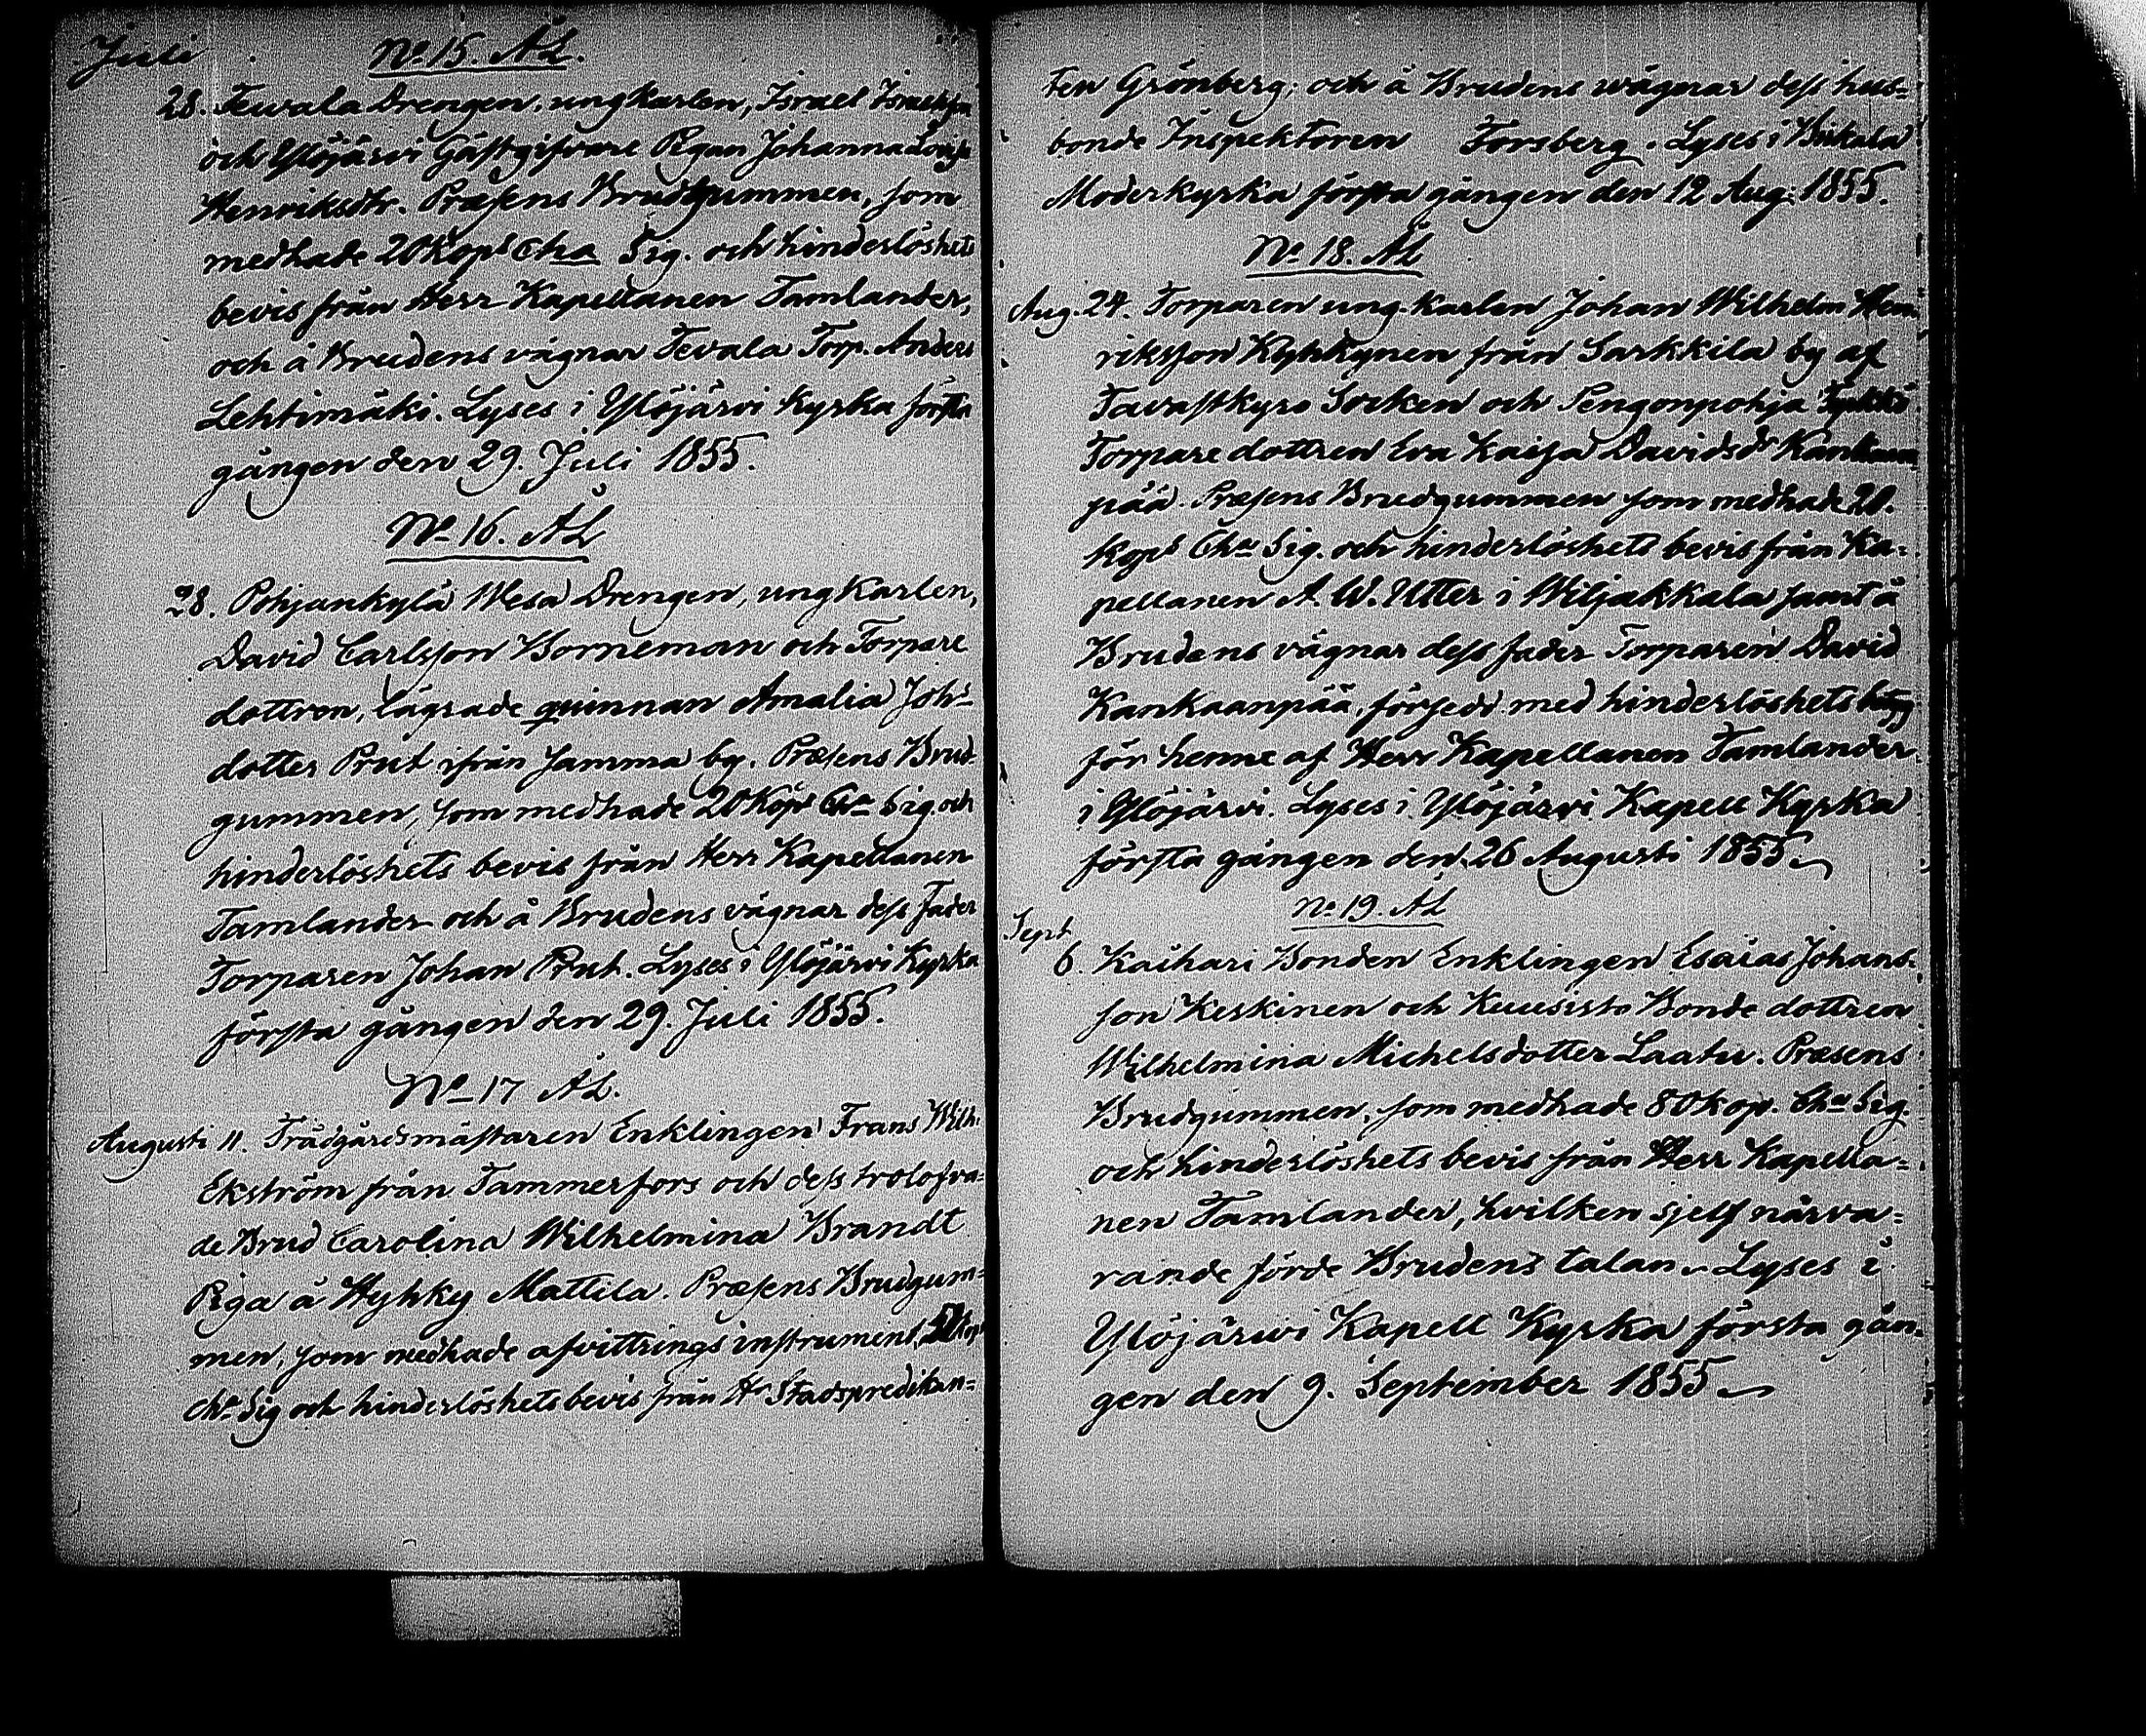 Juli No 15. ÅL.
28. Tevala Drengen, ungkarlen, Israel Israelsson
och Ylöjärvi Gästgifvare Pigan Johanna Lovisa
Henriksdtr. Præsens Brudgummen, som
medhade 20 Kops Cha Sig. och hinderlöshets
bevis från Herr Kapellanen Tamlander,
och å Brudens vägnar Tevala Torp. Anders
Lehtimäki. Lyses i Ylöjärvi Kyrka första
gången den 29. Juli 1855.
No 16. ÅL
28. Pohjankylä Wesa Drengen, ungkarlen,
David Carlsson Borneman och Torpare
dottren, lägrade quinnan Amalia Johs
dotter Prut ifrån Jamma by. Præsens Brud-
gummen, som medhade 20 Kops Cha Sig. och
hinderlöshets bevis från Herr Kapellanen
Tamlander och å Brudens vägnar dess Fader
Torparen Johan Prut. Lyses i Ylöjärvi Kyrka
första gången den 29. Juli 1855.
No 17 ÅL.
Augusti 11. Trädgårdsmästaren Enklingen Frans Wilh.
Ekström från Tammerfors och dess trolofva=
de Brud Carolina Wilhelmina Brandt
Piga å Hyhky Mattila. Præsens Brudgum=
men, som medhade afvittrings instrument, kop
Cha Sig och hinderlöshets bevis från Hr Stadspredikan=
ten Grönberg; och å Brudens wägnar dess hus=
bonde Inspektoren Forsberg. Lyses i Birkala
Moderkyrka första gången den 12 Aug: 1855.
No 18. ÅL
Aug. 24. Torparen ung-karlen Johan Wilhelm Hen=
riksson Kyhkynen från Sarkkila by af
Tavastkyro Socken och Pengonpohja
Torpare dottren Eva Kaisa Davidsdr Kankaan
pää. Præsens Brudgummen som medhade 20.
Kops Cha Sig. och hinderlöshets bevis från Ka=
pellanen A. W. Utter i Wiljakkala samt å
Brudens vägnar dess fader Torparen David
Kankaanpää, försedd med hinderlöshets betyg
för henne af Herr Kapellanen Tamlander
i Ylöjärvi. Lyses i Ylöjärvi Kapell Kyrka
första gången den 26 Augusti 1855
No 19. ÅL
Sept
6. Kaihari Bonden Enklingen Esaias Johans=
son Keskinen och Kuusisto Bonde dottren
Wilhelmina Michelsdotter Laatu. Præsens
Brudgummen, som medhade 80 kop. Cha Sig.
och hinderlöshets bevis från Herr Kapella=
nen Tamlander, hvilken sjelf närva=
rande förde Brudens talan. Lyses i
Ylöjärwi Kapell Kyrka första gån=
gen den 9. September 1855